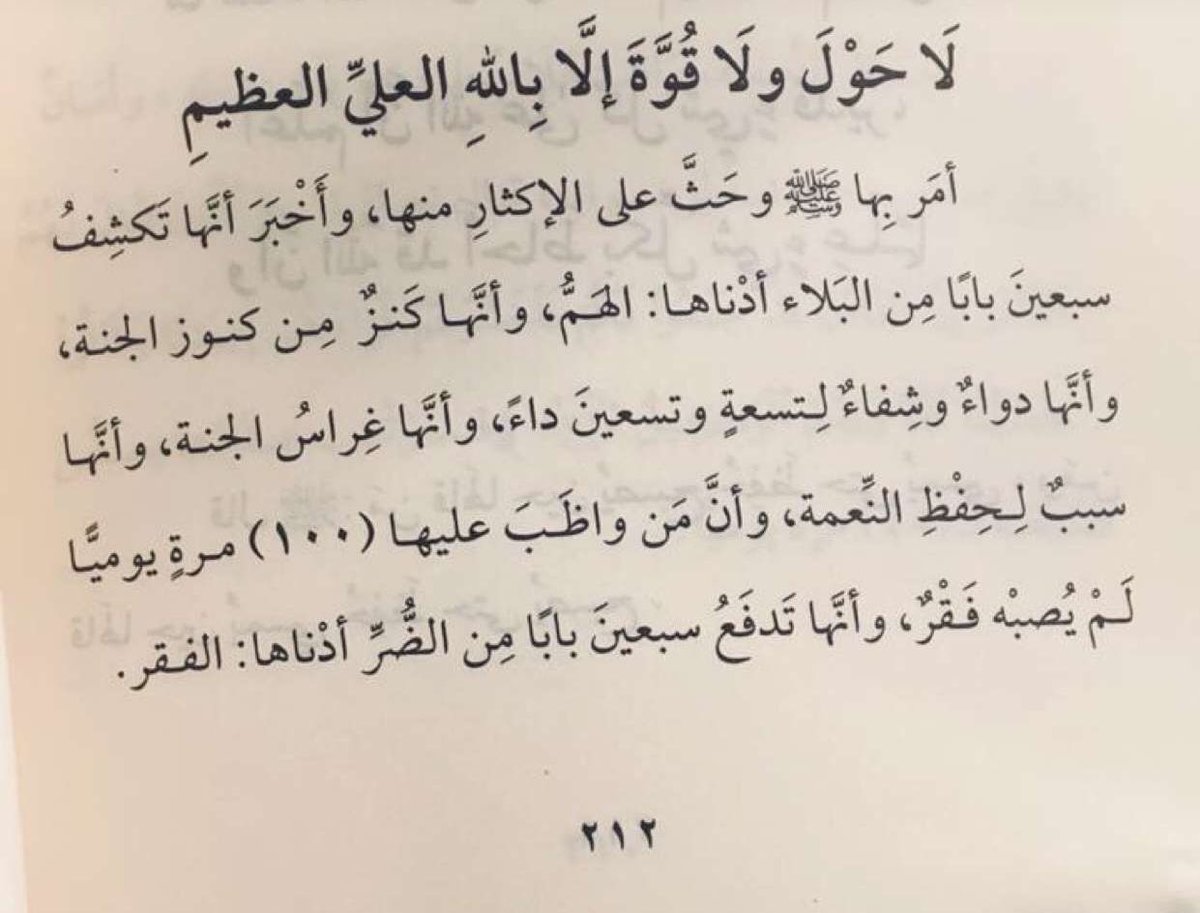 لَا حَوْلَ ولَا قُوَّةَ إلَّا بِاللهِ العليِّ العظيمِ
أمَر بِها ﷺ وحَثَّ على الإكثارِ منها، وأَخْبَرَ أنَّها تَكشِفُ
سبعينَ بابًا مِن البَلاء أدْناها: الهَمُّ، وأنَّها كَنزٌ مِن كنوز الجنة،
وأنَّها دواءٌ وشِفاءٌ لِتسعةٍ وتسعينَ داءً، وأنَّها غِراسُ الجنة، وأنَّها
سببٌ لِحِفْظِ النِّعمة، وأنَّ مَن واظَبَ عليها (١٠٠) مرةٍ يوميًّا
لَمْ يُصبْه فَقْرٌ، وأنَّها تَدفَعُ سبعينَ بابًا مِن الضُّرِّ أدْناها: الفقر.
٢١٢